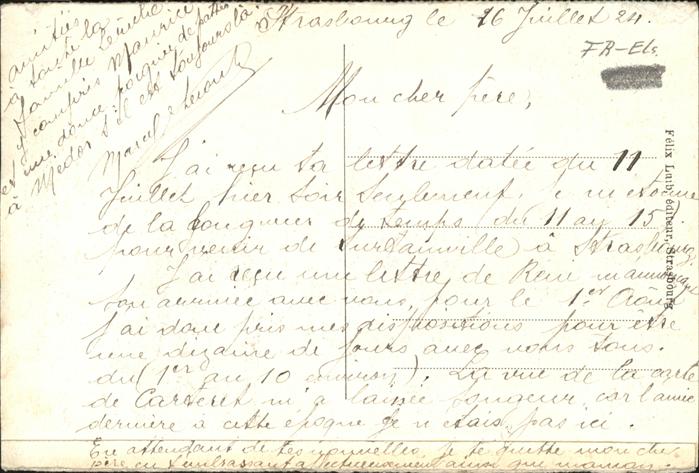 Strasbourg le 16 Juillet 24.
FR-Els.
Mon cher père,
J'ai reçu ta lettre datée du 11
Juillet hier soir seulement, je m'étonne
de la longueur de temps du 11 au 15
pour venir de Surtainville à Strasbourg
J'ai reçu une lettre de René m'annonçant
son arrivée avec vous pour le 1er Août
J'ai donc pris mes dispositions pour être
une dizaine de jours avec vous tous.
du (1er au 10 environ). La vue de la carte
de Carteret m'a laissé songeur car l'année
dernière à cette époque je n'étais pas ici.
En attendant de tes nouvelles, je te quitte mon cher
père en t'embrassant ainsi que maman.
amitiés
à toute la
famille
y compris Maurice
et une bonne poignée de patte
à Médor s'il est toujours là.
Marcel
Félix Luib, éditeur, Strasbourg